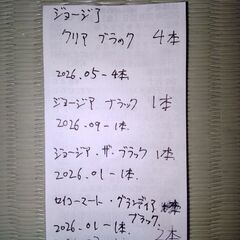 ジョージア
クリア ブラック 4本
2026.05-4本
ジョージア ブラック 1本
2026.09-1本.
ジョージア・ザ・ブラック 1本
2026.01-1本.
セイコーマート・グランディア
ブラック 2本
2026.01-1本.